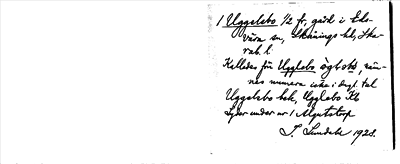 1 Uggelebo 1/2 fr. gård i Eds-
vära sn, Skånings hd, Ska-
rab. l.
Kallades för Ugglebo ögt oks, näm-
nes numera icke i dagl. tal
Uggelebo bek, Ugglebo Kb
Lyder under nr 1 Algutstorp
J. Sundell 1923.